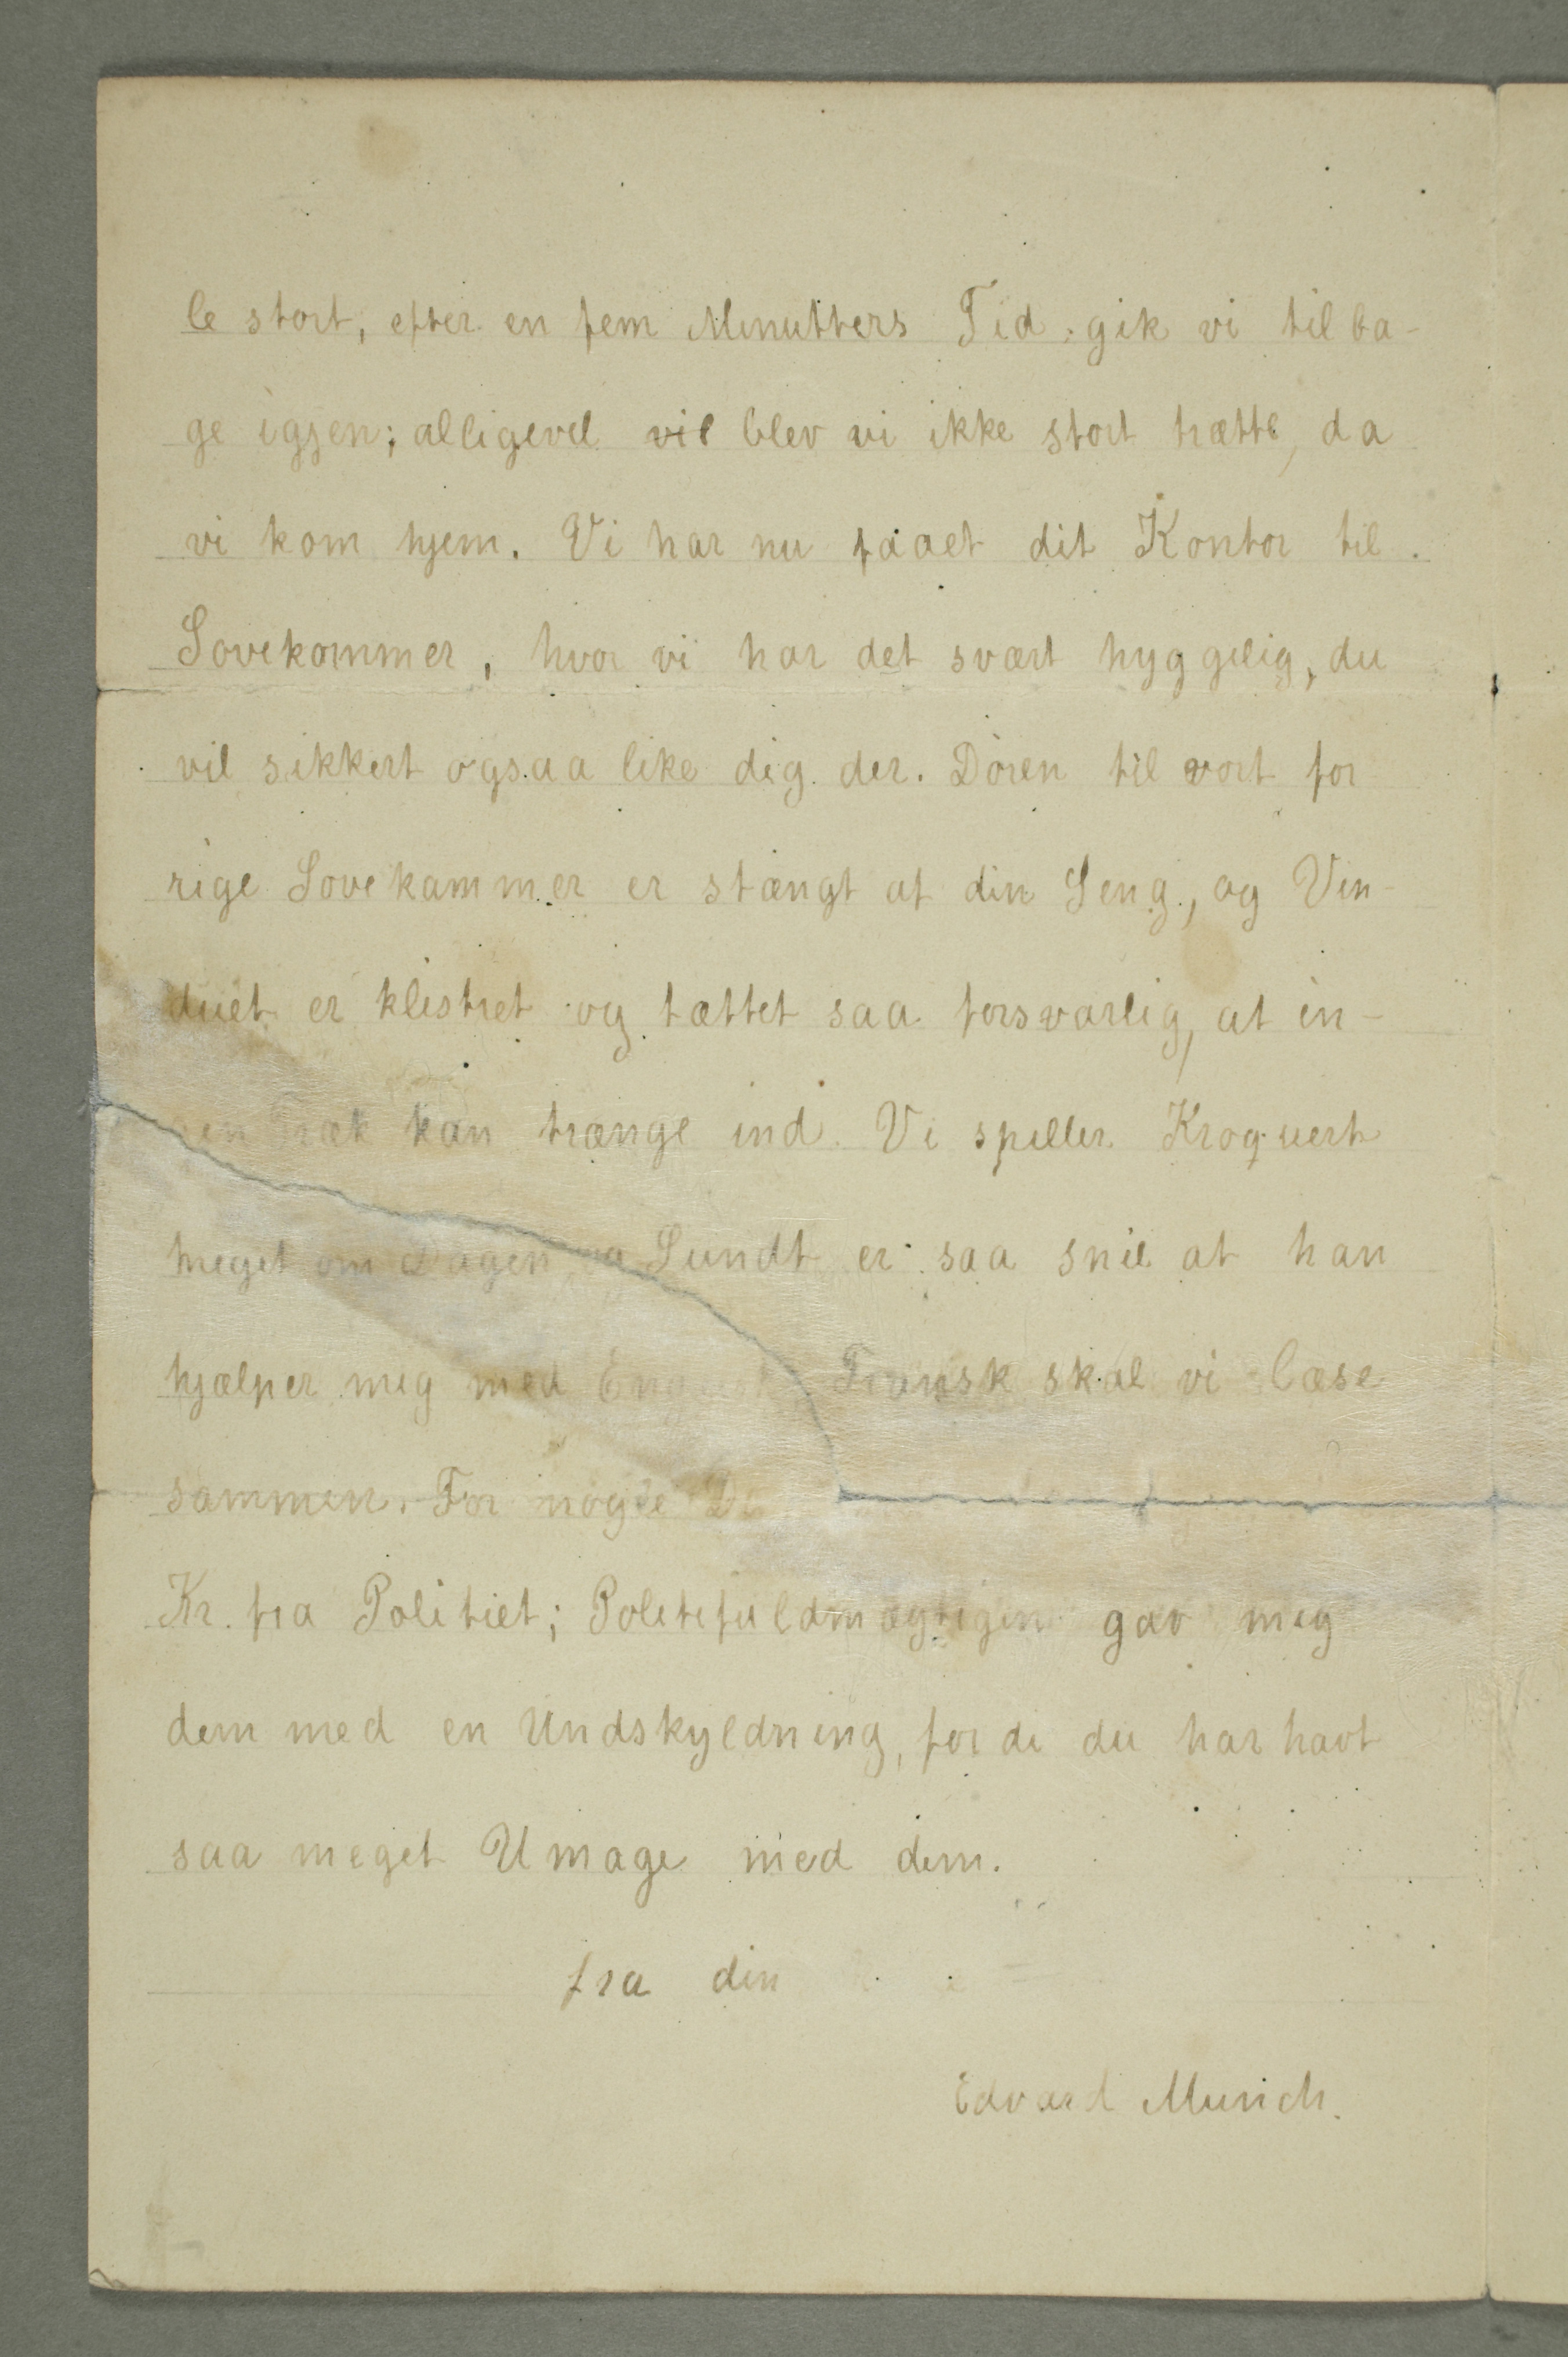 le stort, efter en fem Minutters Tid gik vi tilba-
ge igjen; alligevel vil blev vi ikke stort trætte, da
vi kom hjem. Vi har nu faaet dit Kontor til
Sovekammer, hvor vi har det svært hyggelig, du
vil sikkert ogsaa like dig der. Døren til vort for
rige Sovekammer er stængt af din Seng, og Vin-
duet er klistret og tættet saa forsvarlig, at in-
gen Træk kan trænge ind. Vi spiller Kroquert
meget om Dagen, og Sundt er saa snil at han
hjælper mig med Engelsk Fransk skal vi læse
sammen. For nogle
Kr. fra Politiet; Politifuldmægtigen gav mig
dem med en Undskyldning, fordi du har havt
saa meget Umage med dem.
fra din
Edvard Munch.